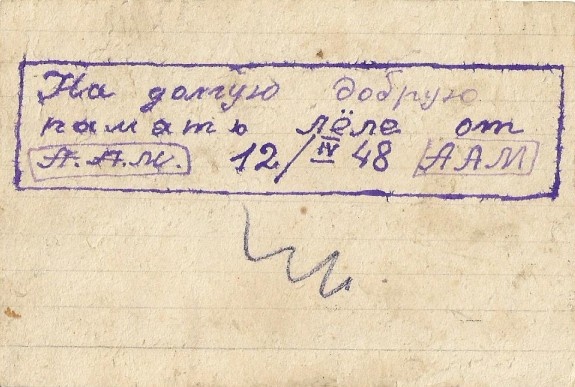 На долгую добрую
память лёле от
А.А.М. 12/IV 48 ААМ